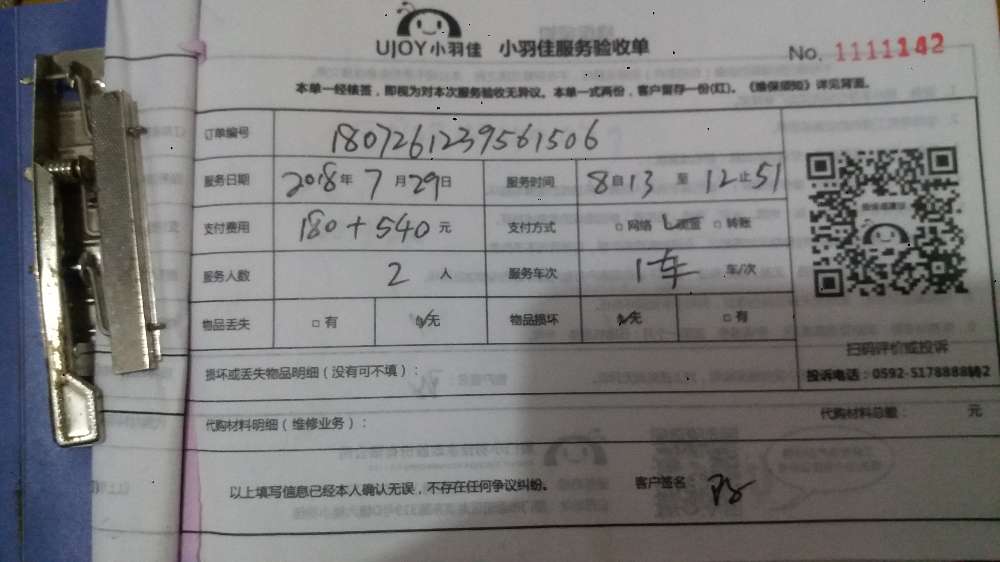 UJOY小羽佳 小羽佳服务验收单 No. 1111142
本单一经核签，即视为对本次服务验收无异议。本单一式两份，客户留存一份(红)。《维保须知》详见背面。
订单编号 1807261239561506
服务日期 2018年7月29日 服务时间 8自13至12止51
支付费用 180+540元 支付方式 □网络 现金 □转账
服务人数 2人 服务车次 1车 车/次
物品丢失 □有 无 物品损坏 无 □有
扫码评价或投诉
损坏或丢失物品明细（没有可不填）： 投诉电话：0592-5178888
代购材料明细（维修业务）： 代购材料总额： 元
以上填写信息已经本人确认无误，不存在任何争议纠纷。 客户签名